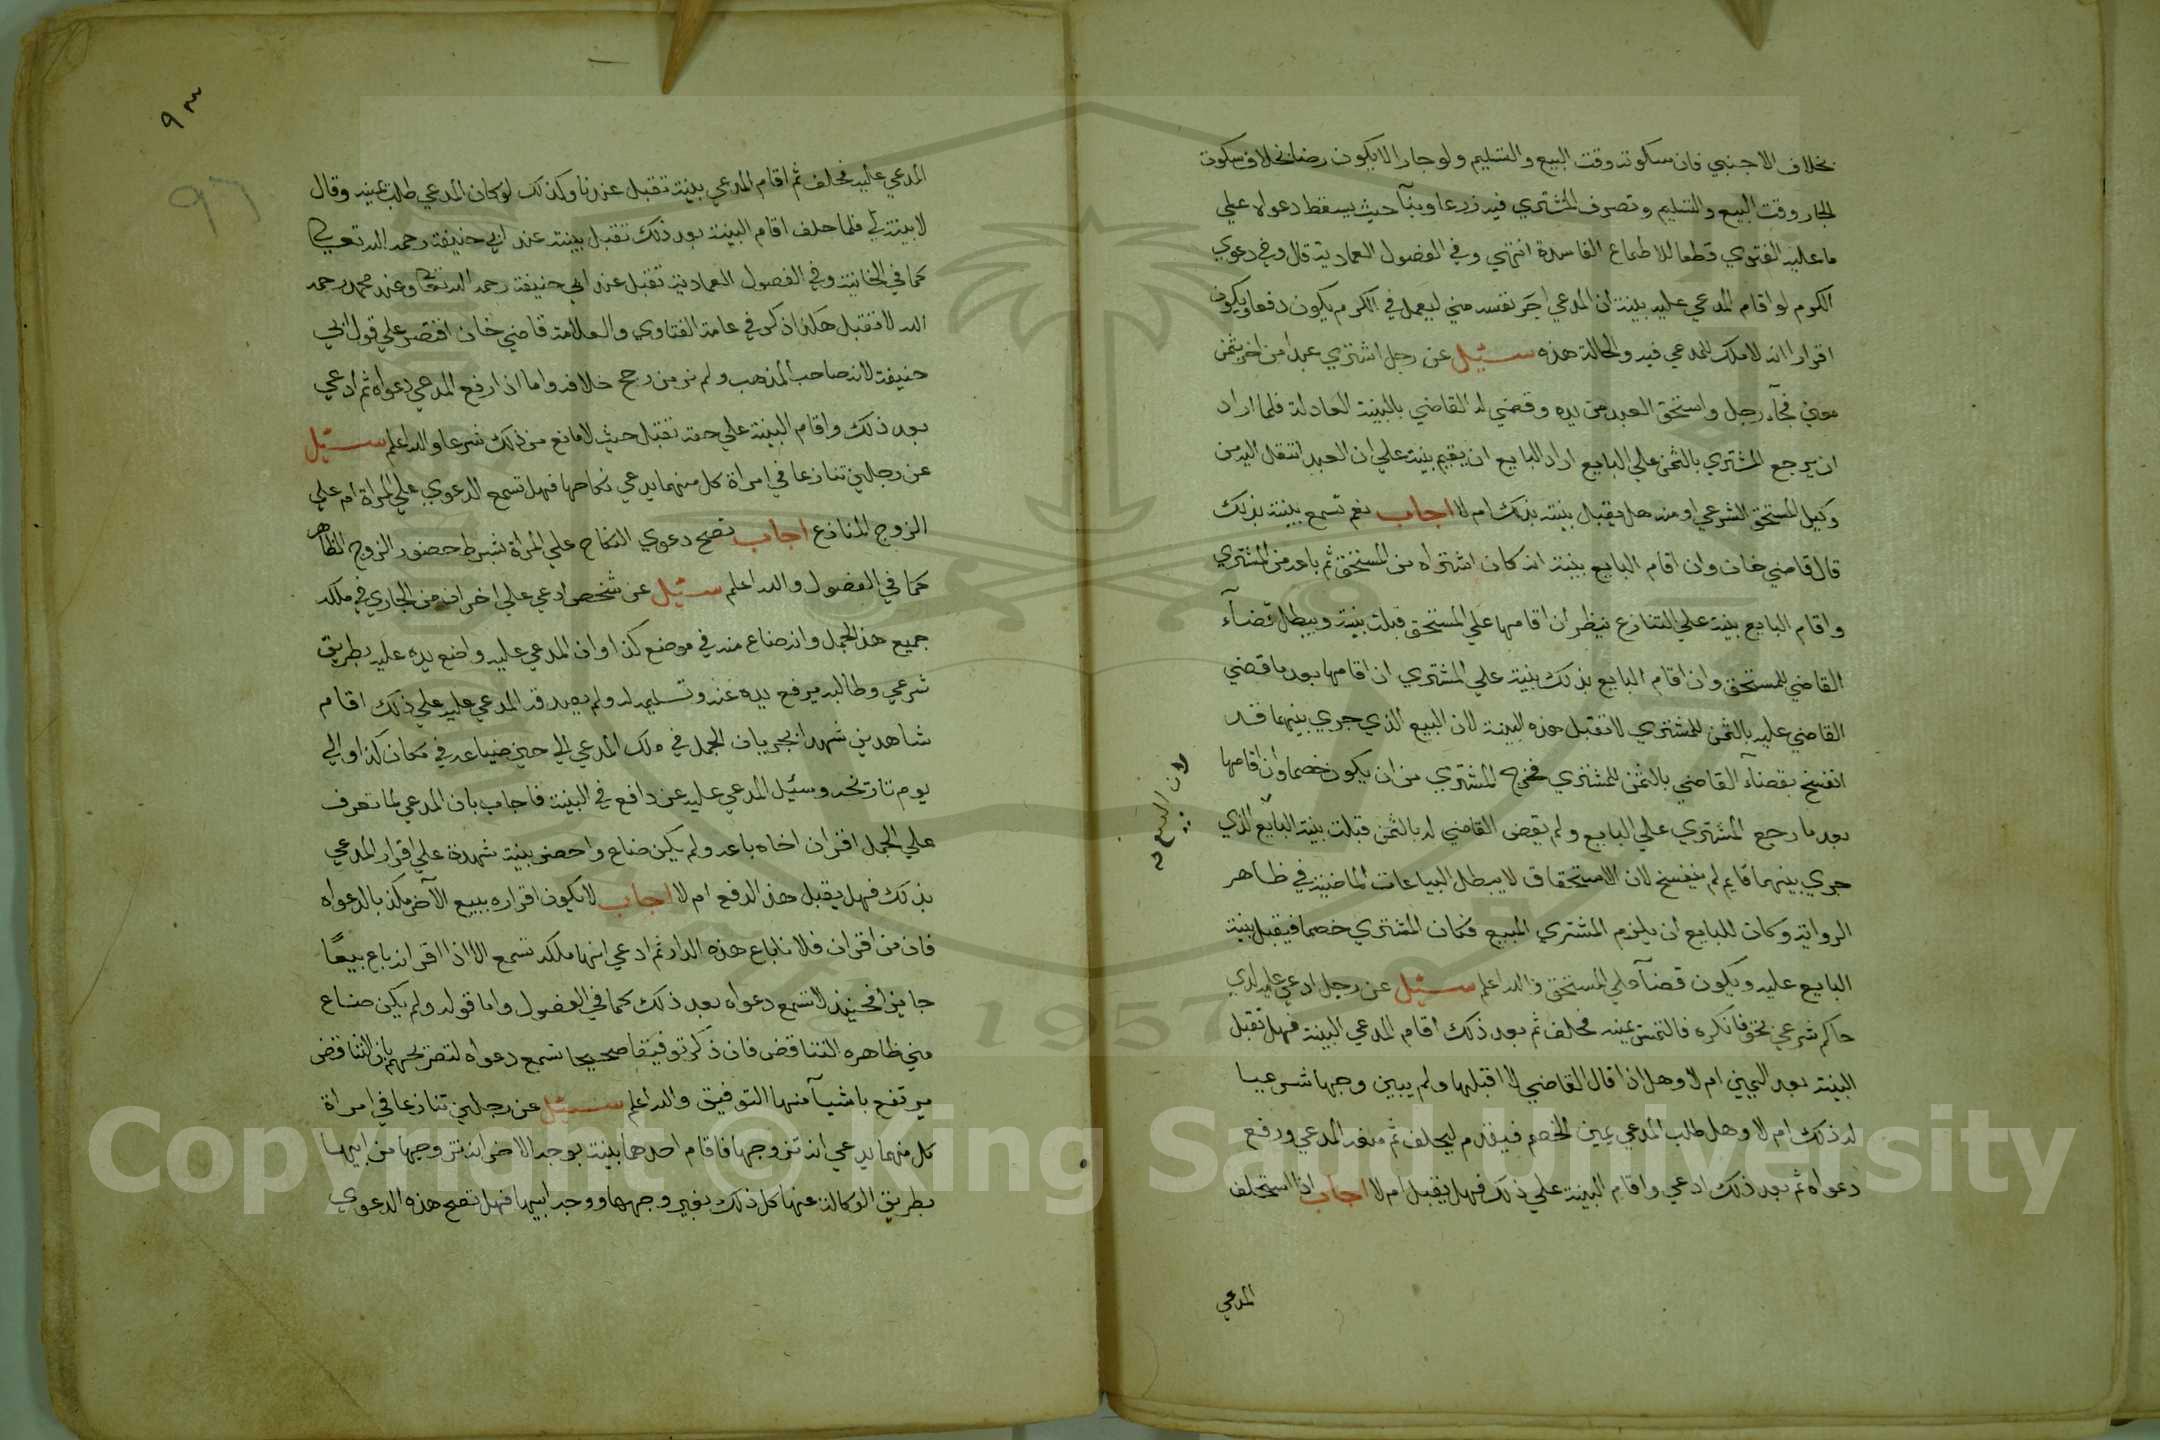 بخلاف الاجنبي فان سكوته وقت البيع والتسليم ولو جارا لا يكون رضا بخلاف سكوت
الجار وقت البيع والتسليم وتصرف المشتري فيه زرعا وبنآ حيث يسقط دعواه علي
ما عليه الفتوي قطعا للاطماع الفاسدة انتهي وفي الفصول العمادية قال وفي دعوي
الكرم لو اقام المدعي عليه بينة ان المدعي اجر نفسه مني ليعمل في الكرم يكون دفعا ويكون
اقرارا انه لا ملك للمدعي فيه والحالة هذه سئيل عن رجل اشتري عبدا من اخر بثمن
معين فجآء رجل واستحق العبد من يده وقضي له القاضي بالبينة العادلة فلما اراد
ان يرجع المشتري بالثمن علي البايع اراد البايع ان يقيم بينة علي ان العبد انتقل اليه من
وكيل المستحق الشرعي او منه هل يقبل بينته بذلك ام لا اجاب نعم تسمع بينته بذلك
قال قاضي خان وان اقام البايع بينة انه كان اشتراه من المستحق ثم باعه من المشتري
واقام البايع بينة علي التنازع ينظر ان اقامها علي المستحق قبلت بينته ويبطل قضآء
القاضي للمستحق وان اقام البايع بذلك بينة علي المشتري ان اقامها بعد ما قضي
القاضي عليه بالثمن للمشتري لا تقبل هذه البينة لان البيع الذي جري بينهما قد
انفسخ بقضآء القاضي بالثمن للمشتري فخرج المشتري من ان يكون خصما وان اقامها
بعد ما رجع المشتري علي البايع ولم يقض القاضي له بالثمن قبلت بينة البايع الذي
لان البيع صح
جري بينهما قايم لم ينفسخ لان الاستحقاق لا يبطل البياعات الماضية في ظاهر
الرواية وكان للبايع ان يلزم المشتري المبيع فكان المشتري خصما فيقبل بينة
البايع عليه ويكون قضآ علي المستحق والله اعلم سئيل عن رجل ادعي عليه لدي
حاكم شرعي بحق فانكره فالتمس يمينه فحلف ثم بعد ذلك اقام المدعي البينة فهل تقبل
البينة بعد اليمين ام لا وهل اذا قال القاضي لا اقبلها ولم يبين وجها شرعيا
له ذلك ام لا وهل طلب المدعي يمين الخصم فيقدم ليحلف ثم منعه المدعي ورفع
دعواه ثم بعد ذلك ادعي واقام البينة علي ذلك فهل يقبل ام لا اجاب اذا استحلف
المدعي
٩٣
٩٦
المدعي عليه فحلف ثم اقام المدعي بينة تقبل عندنا وكذلك لو كان المدعي طلب يمينه وقال
لا بينة لي فلما حلف اقام البينة بعد ذلك تقبل بينته عند ابي حنيفة رحمه الله تعالي
كما في الخانية وفي الفصول العمادية تقبل عند ابي حنيفة رحمه الله تعالي وعند محمد رحمه
الله لا تقبل هكذا ذكر في عامة الفتاوي والعلامة قاضي خان اقتصر علي قول ابي
حنيفة لانه صاحب المذهب ولم نر من رجح خلافه واما اذا رفع المدعي دعواه ثم ادعي
بعد ذلك واقام البينة علي حقه تقبل حيث لا مانع من ذلك شرعا والله اعلم سئيل
عن رجلين تنازعا في امراة كل منهما يدعي نكاحها فهل تسمع الدعوي علي المراة ام علي
الزوج المنازع اجاب تصح دعوي النكاح علي المراة بشرط حضور الزوج الظاهر
كما في الفصول والله اعلم سئيل عن شخص ادعي علي اخر انه من الجاري في ملكه
جميع هذا الجمل وانه ضاع منه في موضع كذا وان المدعي عليه واضع يده عليه بطريق
شرعي وطالبه برفع يده عنه وتسليمه له ولم يصدقه المدعي عليه علي ذلك اقام
شاهدين شهدا بجريان الجمل في ملك المدعي الي حين ضياعه في مكان كذا والي
يوم تاريخه وسئيل المدعي عليه عن دافع في البينة فاجاب بان المدعي لما تعرف
علي الجمل اقر ان اخاه باعه ولم يكن ضاع واحضر بينة شهدة علي اقرار المدعي
بذلك فهل يقبل هذا الدفع ام لا اجاب لا يكون اقراره ببيع الآخر مكذبا لدعواه
فان من اقر ان فلانا باع هذه الدار ثم ادعي انها ملكه تسمع الا اذا اقر انه باع بيعًا
جايزا فحينئذ لا تسمع دعواه بعد ذلك كما في الفصول واما قوله ولم يكن ضاع
مني ظاهره التناقض فان ذكر توفيقا صحيحا تسمع دعواه لتصريحهم بان التناقض
يرتفع باشيآ منها التوفيق والله اعلم سئيل عن رجلين تنازعا في امراة
كل منهما يدعي انه تزوجها فاقام احدهما بينة بوجه الاخر انه تزوجها من ابيها
بطريق الوكالة عنها كل ذلك بغير وجهها ووجه ابيها فهل تصح هذه الدعوي
Copyright © King Saud University
1957